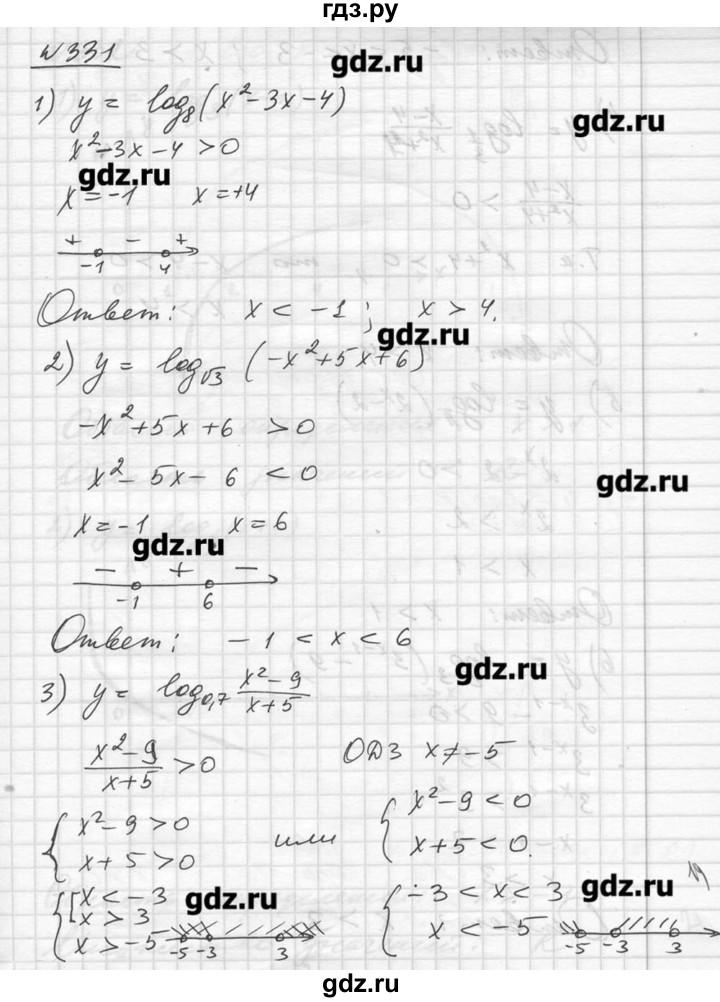 гдз.ру
№331
gdz.ru
1) y = log₈(x²-3x-4)
gdz.ru
x²-3x-4 >0
gdz.ru
x=-1 x=+4
+ - +
-1 4
Ответ: x < -1; x > 4.
gdz.ru
2) y = log√3 (-x²+5x+6)
-x²+5x+6 >0
x²-5x-6 <0
gdz.ru
x=-1 x=6
gdz.ru
- + -
-1 6
Ответ: -1 < x < 6
gdz.ru
3) y = log₀,₇ (x²-9)/(x+5)
(x²-9)/(x+5) >0 ОДЗ x≠-5
{ x²-9 >0 или { x²-9 <0
x+5 >0 x+5 <0.
{ [ x < -3 { -3 < x < 3
x > 3
x > -5 x < -5
gdz.ru gdz.ru
-5 -3 3 -5 -3 3
gdz.ru